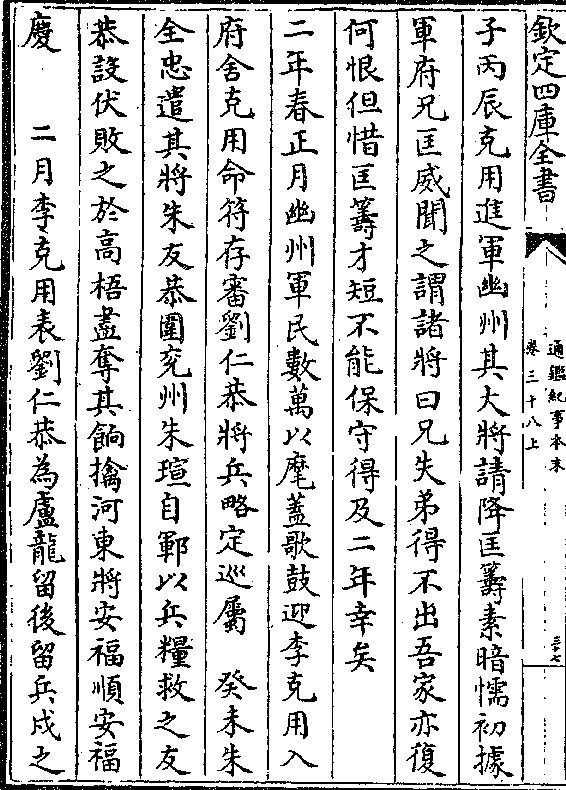 欽定四庫全書
通鑑紀事本末
卷三十八上
三十七
子丙辰克用進軍幽州其大將請降匡籌素暗懦初據
軍府兄匡威聞之謂諸將曰兄失弟得不出吾家亦復
何恨但惜匡籌才短不能保守得及二年幸矣
二年春正月幽州軍民數萬以麾蓋歌鼓迎李克用入
府舍克用命符存審劉仁恭將兵略定巡屬 癸未朱
全忠遣其將朱友恭圍兗州朱瑄自鄆以兵糧救之友
恭設伏敗之於高梧盡奪其餉擒河東將安福順安福
慶 二月李克用表劉仁恭為盧龍留後留兵戍之